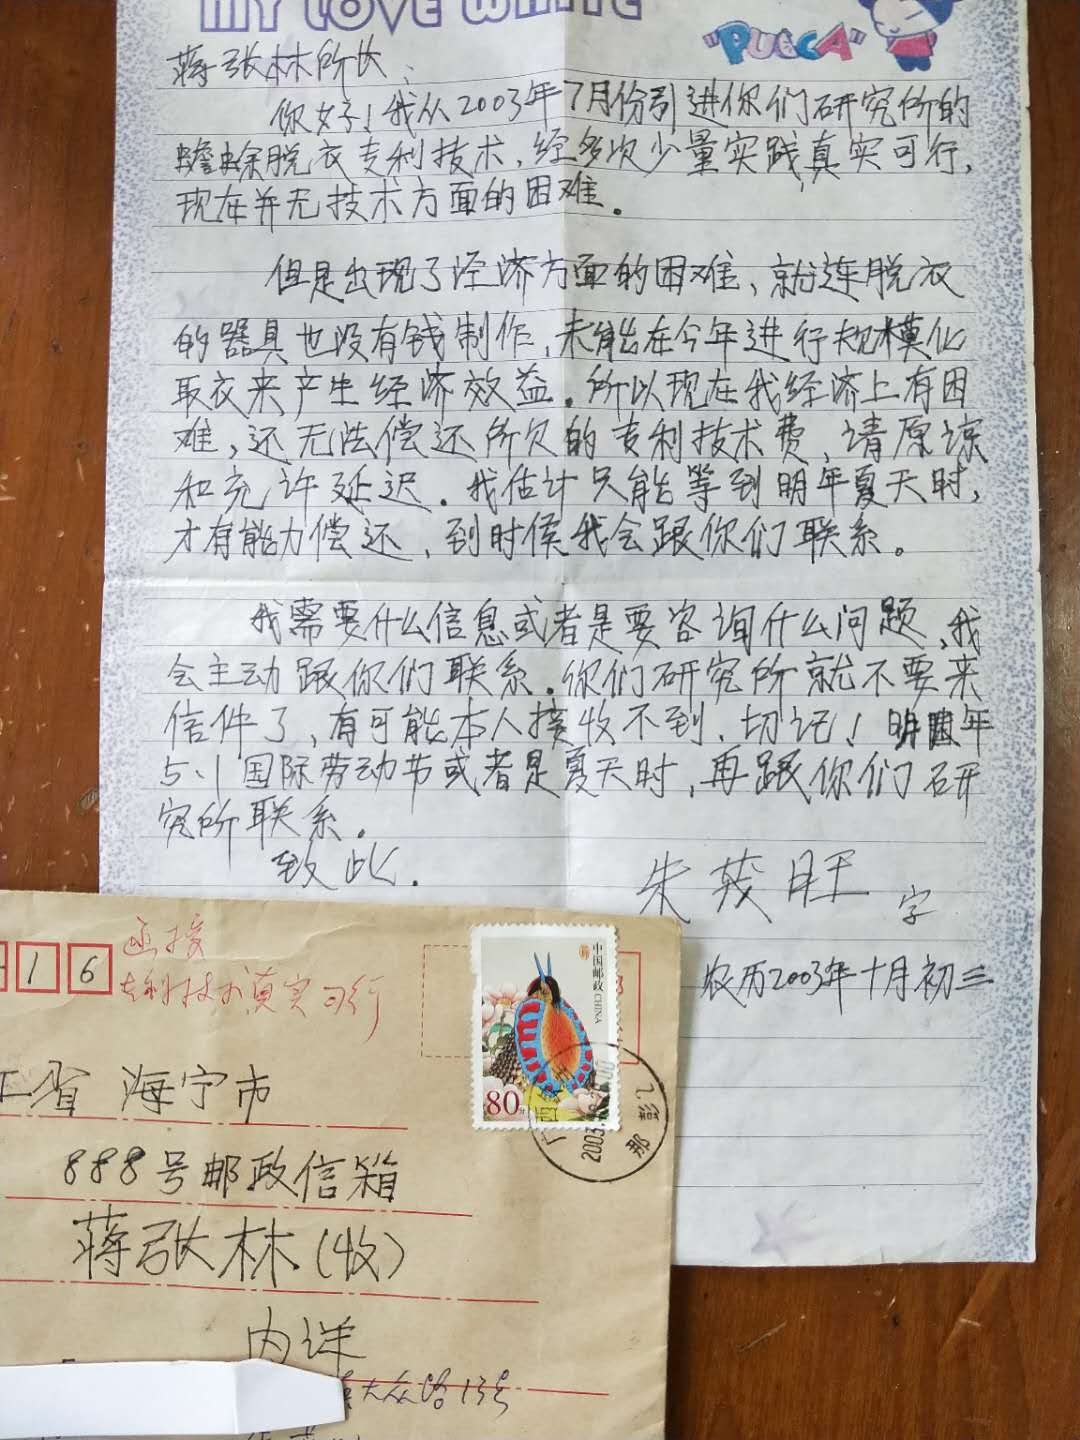 MY LOVE WHITE
"PUCCA"
蒋张林所长、
你好！我从2003年7月份引进你们研究所的
蟾蜍脱衣专利技术，经多次少量实践，真实可行，
现在并无技术方面的困难。
但是出现了经济方面的困难、就连脱衣
的器具也没有钱制作，未能在今年进行规模化
取衣来产生经济效益。所以现在我经济上有困
难，还无法偿还所欠的专利技术费，请原谅
和充许延迟。我估计只能等到明年夏天时，
才有能力偿还，到时侯我会跟你们联系。
我需要什么信息或者是要咨询什么问题，我
会主动跟你们联系。你们研究所就不要来
信件了，有可能本人接收不到，切记！明年
5.1国际劳动节或者是夏天时，再跟你们研
究所联系。
致此.
朱茂旺 字
农历2003年十月初三
16
函授
专利技术真实可行
中国邮政 CHINA
80分
广西
2003.
那
江省 海宁市
888号邮政信箱
蒋张林(收)
内详
大众路13号